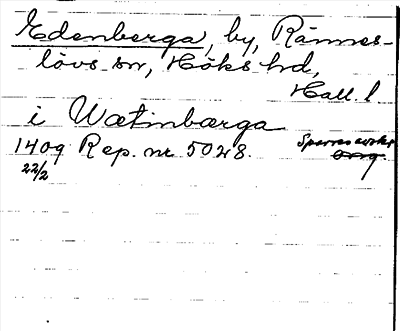 Edenberga, by, Rännes-
lövs sn, Höks hd,
Hall. l
i Wætinbærga
1409 Rep. nr 5028. Sparres avskr
22/2 orig.